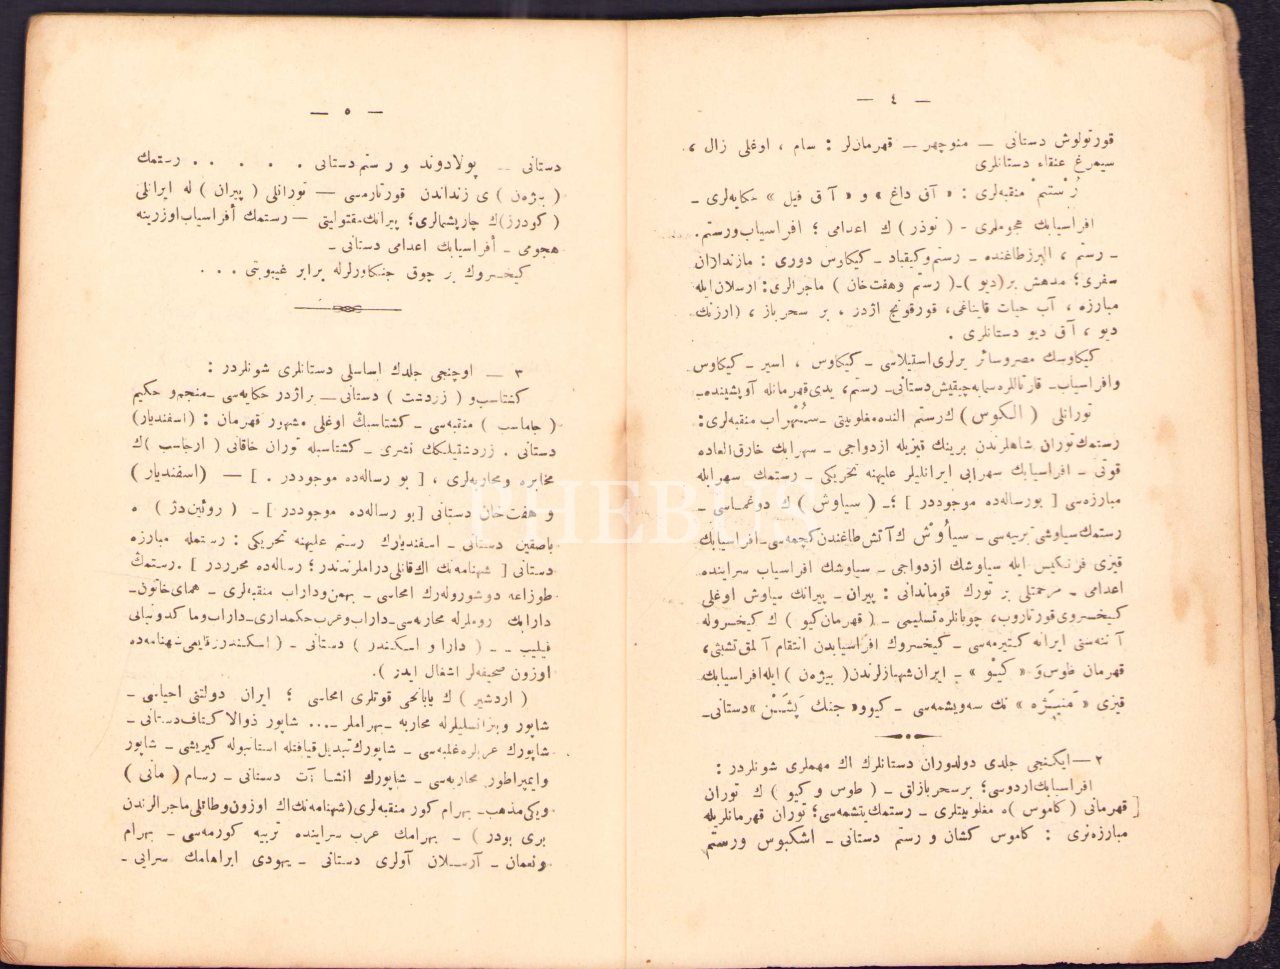 — ٤ —
قورتولوش دستانی — منوچهر — قهرمان‌لر : سام ، اوغلی زال ،
سیمرغ عنقاء دستانلری
رُستمْ منقبه‌لری : « آق داغ » و « آ ق فیل » حکایه‌لری ـ
افراسیابك هجوملری - ( نوذر ) ك اعدامی ؛ افراسیاب ورستم.
ـ رستم ، البرزطاغنده ـ رستم وکیقباد ـ کیکاوس دوری : مازندلاان
سفری ؛ مدهش بر (دیو )ـ( رستم وهفت‌خان ) ماجرالری : ارسلان ایله
مبارزه ، آب حیات قایناغی ، قورقونج اژدر ، بر سحرباز ، (ارژنك
دیو ، آ ق دیو دستانلری .
کیکاوسك مصروسائر یرلری استیلاسی ـ کیکاوس ، اسیر ـ کیکاوس
وافراسیاب ـ قارتاللره سمایه چیقیش دستانی ـ رستم ، یدی قهرمانله آویشینده ـ
تورانلی ( الکوس ) ك رستم الند‌ه مغلوبیتی ـ سُهْراب منقبه‌لری :
رستمك توران شاهلرندن برینك قیزیله ازدواجی ـ سهرابك خارق‌العاده
قوتی ـ افراسیابك سهرابی ایرانلیلر علیهنه تحریکی ـ رستمك سهرابله
مبارزه‌سی [ بورساله‌ده موجوددر ] ؛ـ ( سیاوش ) ك دوغماسی ـ
رستمك سیاوشی تربیه‌سی ـ سیاوُش ك آتش طاغندن کچمه‌سی ـ افراسیابك
قیزی فرنکیس ایله سیاوشك ازدواجی ـ سیاوشك افراسیاب سراینده
اعدامی ـ مرحمتلی بر تورك قوماندانی : پیران ـ پیرانك سیاوش اوغلی
کیخسروی قورتاروب ، چوبانلره تسلیمی ـ ( قهرمان کیو ) ك کیخسروله
آ ننه‌سنی ایرانه کتیرمه‌سی ـ کیخسروك افراسیابدن انتقام آ لمق تشبثی ،
قهرمان طوس وَ « کیْو » ـ ایران شهبازلرندن ( بیژه‌ن ) ایله افراسیابك
قیزی « مَنیژَه » نك سه‌ویشمه‌سی ـ کیوو « جنك پَشَنْ » دستانی ـ
٢ — ایکنجی جلدی دولدوران دستانلرك اك مهملری شونلردر :
افراسیابك اردوسی ؛ برسحربازلق ـ ( طوس و کیو ) ك توران
قهرمانی ( کاموس ) ه مغلوبیتلری ـ رستمك یتشمه‌سی ؛ توران قهرمانلریله
مبارزه‌لری : کاموس کشان و رستم دستانی ـ اشکبوس ورستم
— ٥ —
دستانی — پولادوند و رستم دستانی . . . . . رستمك
( بیژه‌ن ) ی زنداندن قورتارمه‌سی — تورانلی ( پیران ) له ایرانلی
( کودرز ) ك چارپشمالری ؛ پیرانك مقتولیتی — رستمك افراسیاب اوزرینه
هجومی ـ أفراسیابك اعدامی دستانی ـ
کیخسروك بر چوق جنکاورلرله برابر غیبوبتی . . .
٣ — اوچنجی جلدك اساسلی دستانلری شونلردر :
کشتاسب و ( زردشت ) دستانی — براژدر حکایه‌سی ـ منجم و حکیم
( جاماسب ) منقبه‌سی ـ کشتاسبك اوغلی مشهور قهرمان : (اسفندیار)
دستانی . زردشتیلکك نشری ـ کشتاسبله توران خاقانی ( ارجاسب ) ك
مخابره ومحاربه‌لری ، [ بو رساله‌ده موجوددر . ] — (اسفندیار )
و هفت‌خان دستانی [بو رساله‌ده موجوددر ] ـ ( روئین‌دژ ) ه
باصقین دستانی ـ اسفندیارك رستم علیهنه تحریکی : رستمله مبارزه
دستانی [ شهنامه‌نك اك قانلی دراملرندندر ؛ رساله‌ده محرردر ] . رستمك
طوزاغه دوشورولەرك امحاسی ـ بهمن وداراب منقبه‌لری ـ همای خاتون ـ
دارابك روملرله محاربه‌سی ـ داراب وعرب حکمداری ـ داراب وماکدونیالی
فیلیب ـ ـ ( دارا و اسکندر ) دستانی ـ ( اسکندرزقایمی شهنامه‌ده
اوزون صحیفه‌لر اشغال ایدر ).
( اردشیر ) ك یابانجی قوتلری امحاسی ؛ ایران دولتنی احیاسی ـ
شاپور وبیزانسلیلرله محاربه ـ بهراملر ـ ... شاپور ذوالاکتاف دستانی ـ
شاپورك عربلره غلبه‌سی ـ شاپورك تبدیل قیافتله استانبوله کیریشی ـ شاپور
وایمپراطور محاربه‌سی ـ شاپورك انشا آت دستانی ـ رسام ( مانی )
ویکی مذهب ـ بهرام کور منقبه‌لری (شهنامه‌نك اك اوزون وطاتلی ماجرالرندن
بری بودر ) ـ بهرامك عرب سراینده تربیه کورمه‌سی ـ بهرام
ونعمان ـ آرسلان آولری دستانی ـ یهودی ابراهامك سرایی ـ
PHEBUS